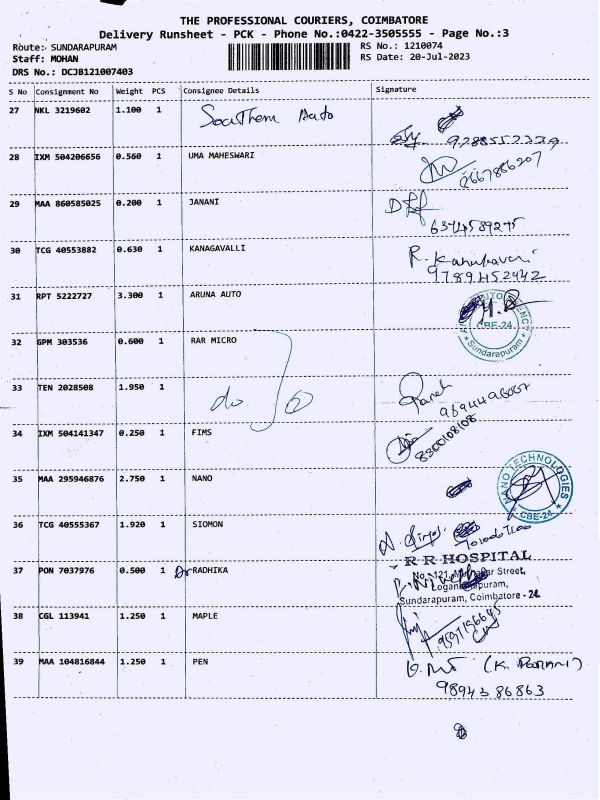 THE PROFESSIONAL COURIERS, COIMBATORE
Delivery Runsheet - PCK - Phone No.:0422-3505555 - Page No.:3
Route: SUNDARAPURAM
RS No.: 1210074
Staff: MOHAN
RS Date: 20-Jul-2023
DRS No.: DCJB121007403
S No Consignment No Weight PCS Consignee Details Signature
27 NKL 3219602 1.100 1 Southern Auto
9288552339
28 IXM 504206656 0.560 1 UMA MAHESWARI
29 MAA 860585025 0.200 1 JANANI
6374589275
30 TCG 40553882 0.630 1 KANAGAVALLI
9789452942
31 RPT 5222727 3.300 1 ARUNA AUTO
CBE-24
Sundarapuram
32 GPM 303536 0.600 1 RAR MICRO
33 TEN 2028508 1.950 1 do
34 IXM 504141347 0.250 1 FIMS
8800108108
35 MAA 295946876 2.750 1 NANO
NANO TECHNOLOGIES
CBE-24
36 TCG 40555367 1.920 1 SIOMON
37 PON 7037976 0.500 1 Dr RADHIKA
R R HOSPITAL
No. 121, Street,
Sundarapuram, Coimbatore - 24.
38 CGL 113941 1.250 1 MAPLE
39 MAA 104816844 1.250 1 PEN
9894386863